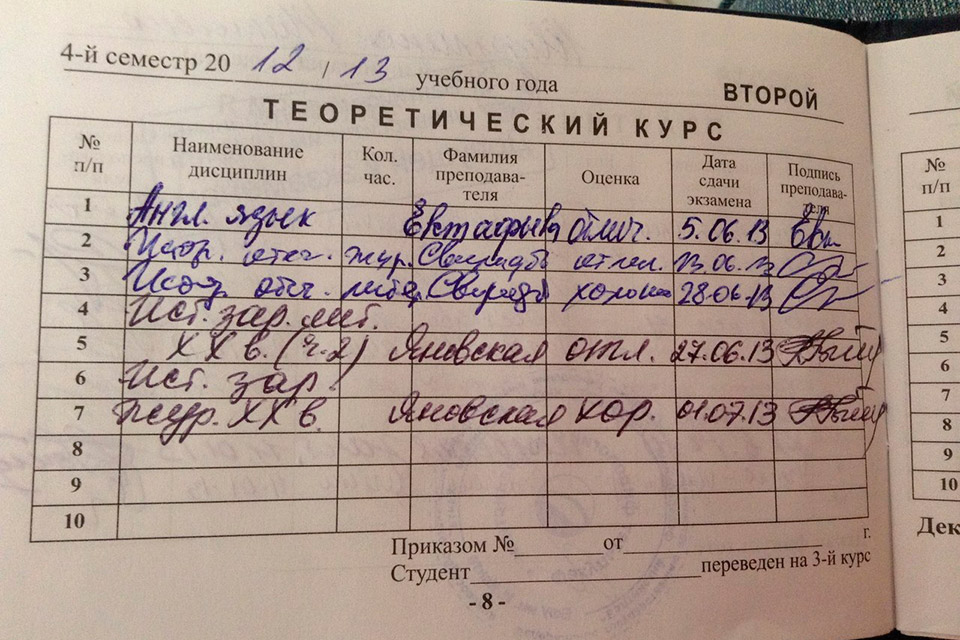 4-й семестр 20 12 / 13 учебного года ВТОРОЙ
ТЕОРЕТИЧЕСКИЙ КУРС
№ п/п Наименование дисциплин Кол. час. Фамилия преподава- теля Оценка Дата сдачи экзамена Подпись преподава- теля
1 Англ. язык отлич. 5.06.13
2 Истор. отеч. жур. отлич. 13.06.13
3 Истор. отеч. хорошо 28.06.13
4 Ист. зар. лит.
5 XX в. (ч.2) Яновская отл. 27.06.13
6 Ист. зар.
7 журн. XX в. Яновская хор. 01.07.13
8
9
10
Приказом № от г.
Студент переведен на 3-й курс
- 8 -
№ п/п
1
2
3
4
5
6
7
8
9
10
Дек